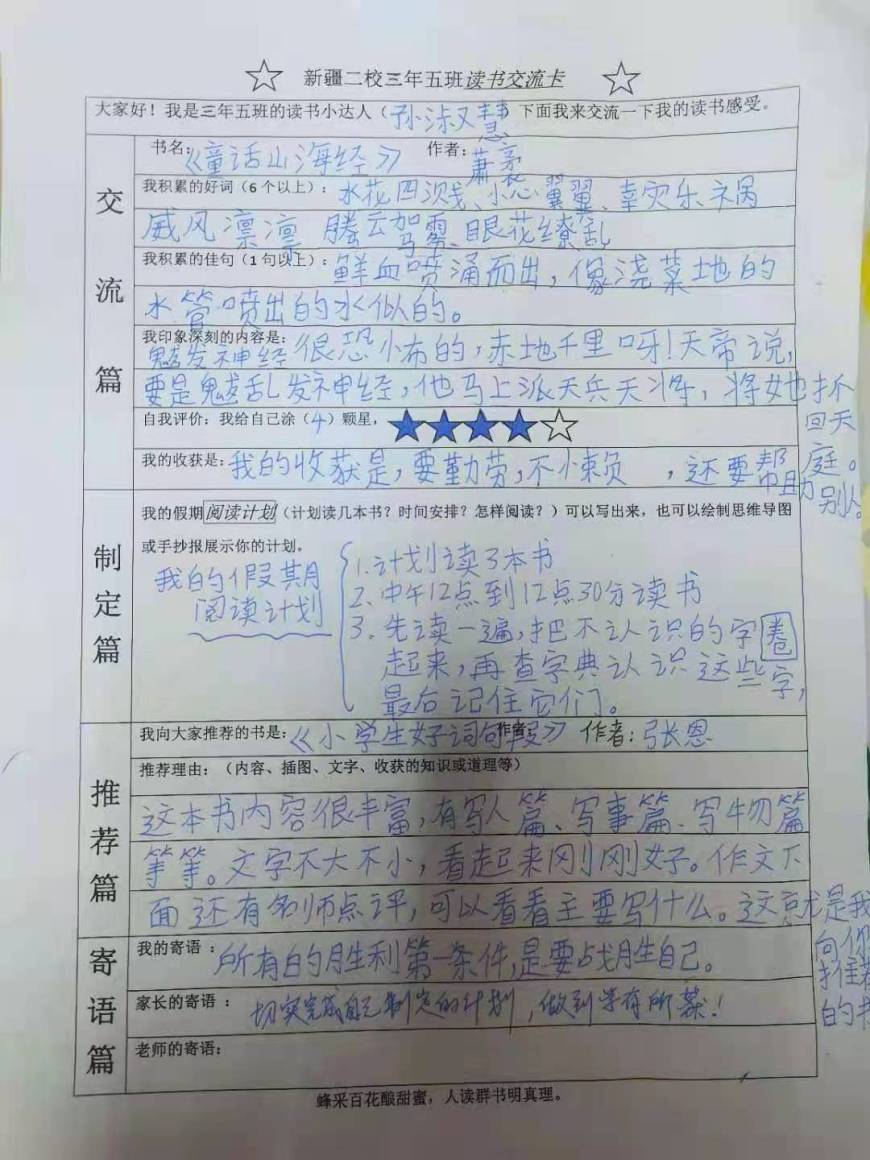 新疆二校三年五班读书交流卡
大家好！我是三年五班的读书小达人（孙淑慧）下面我来交流一下我的读书感受。
交流篇
书名:《童话山海经》 作者：萧袤
我积累的好词（6个以上）：水花四溅、小心翼翼、幸灾乐祸
威风凛凛 腾云驾雾、眼花缭乱
我积累的佳句（1句以上）：鲜血喷涌而出，像浇菜地的
水管喷出的水似的。
我印象深刻的内容是：
魃发神经很恐怖的，赤地千里呀！天帝说，
要是魃乱发神经，他马上派天兵天将，将她抓
回天庭。
自我评价：我给自己涂（4）颗星，
我的收获是：我的收获是，要勤劳，不小懒 ，还要帮助别人。
制定篇
我的假期阅读计划（计划读几本书？时间安排？怎样阅读？）可以写出来，也可以绘制思维导图
或手抄报展示你的计划。
我的假期
阅读计划
1.计划读3本书
2.中午12点到12点30分读书
3.先读一遍，把不认识的字圈
起来，再查字典认识这些字，
最后记住它们。
推荐篇
我向大家推荐的书是：《小学生好词句段》 作者：张恩
推荐理由：（内容、插图、文字、收获的知识或道理等）
这本书内容很丰富，有写人篇、写事篇、写物篇
等等。文字不大不小，看起来刚刚好。作文下
面还有名师点评，可以看看主要写什么。这就是我
向你
推荐
的书
寄语篇
我的寄语：所有的胜利第一条件，是要战胜自己。
家长的寄语：切实完成自己制定的计划，做到学有所获！
老师的寄语：
蜂采百花酿甜蜜，人读群书明真理。